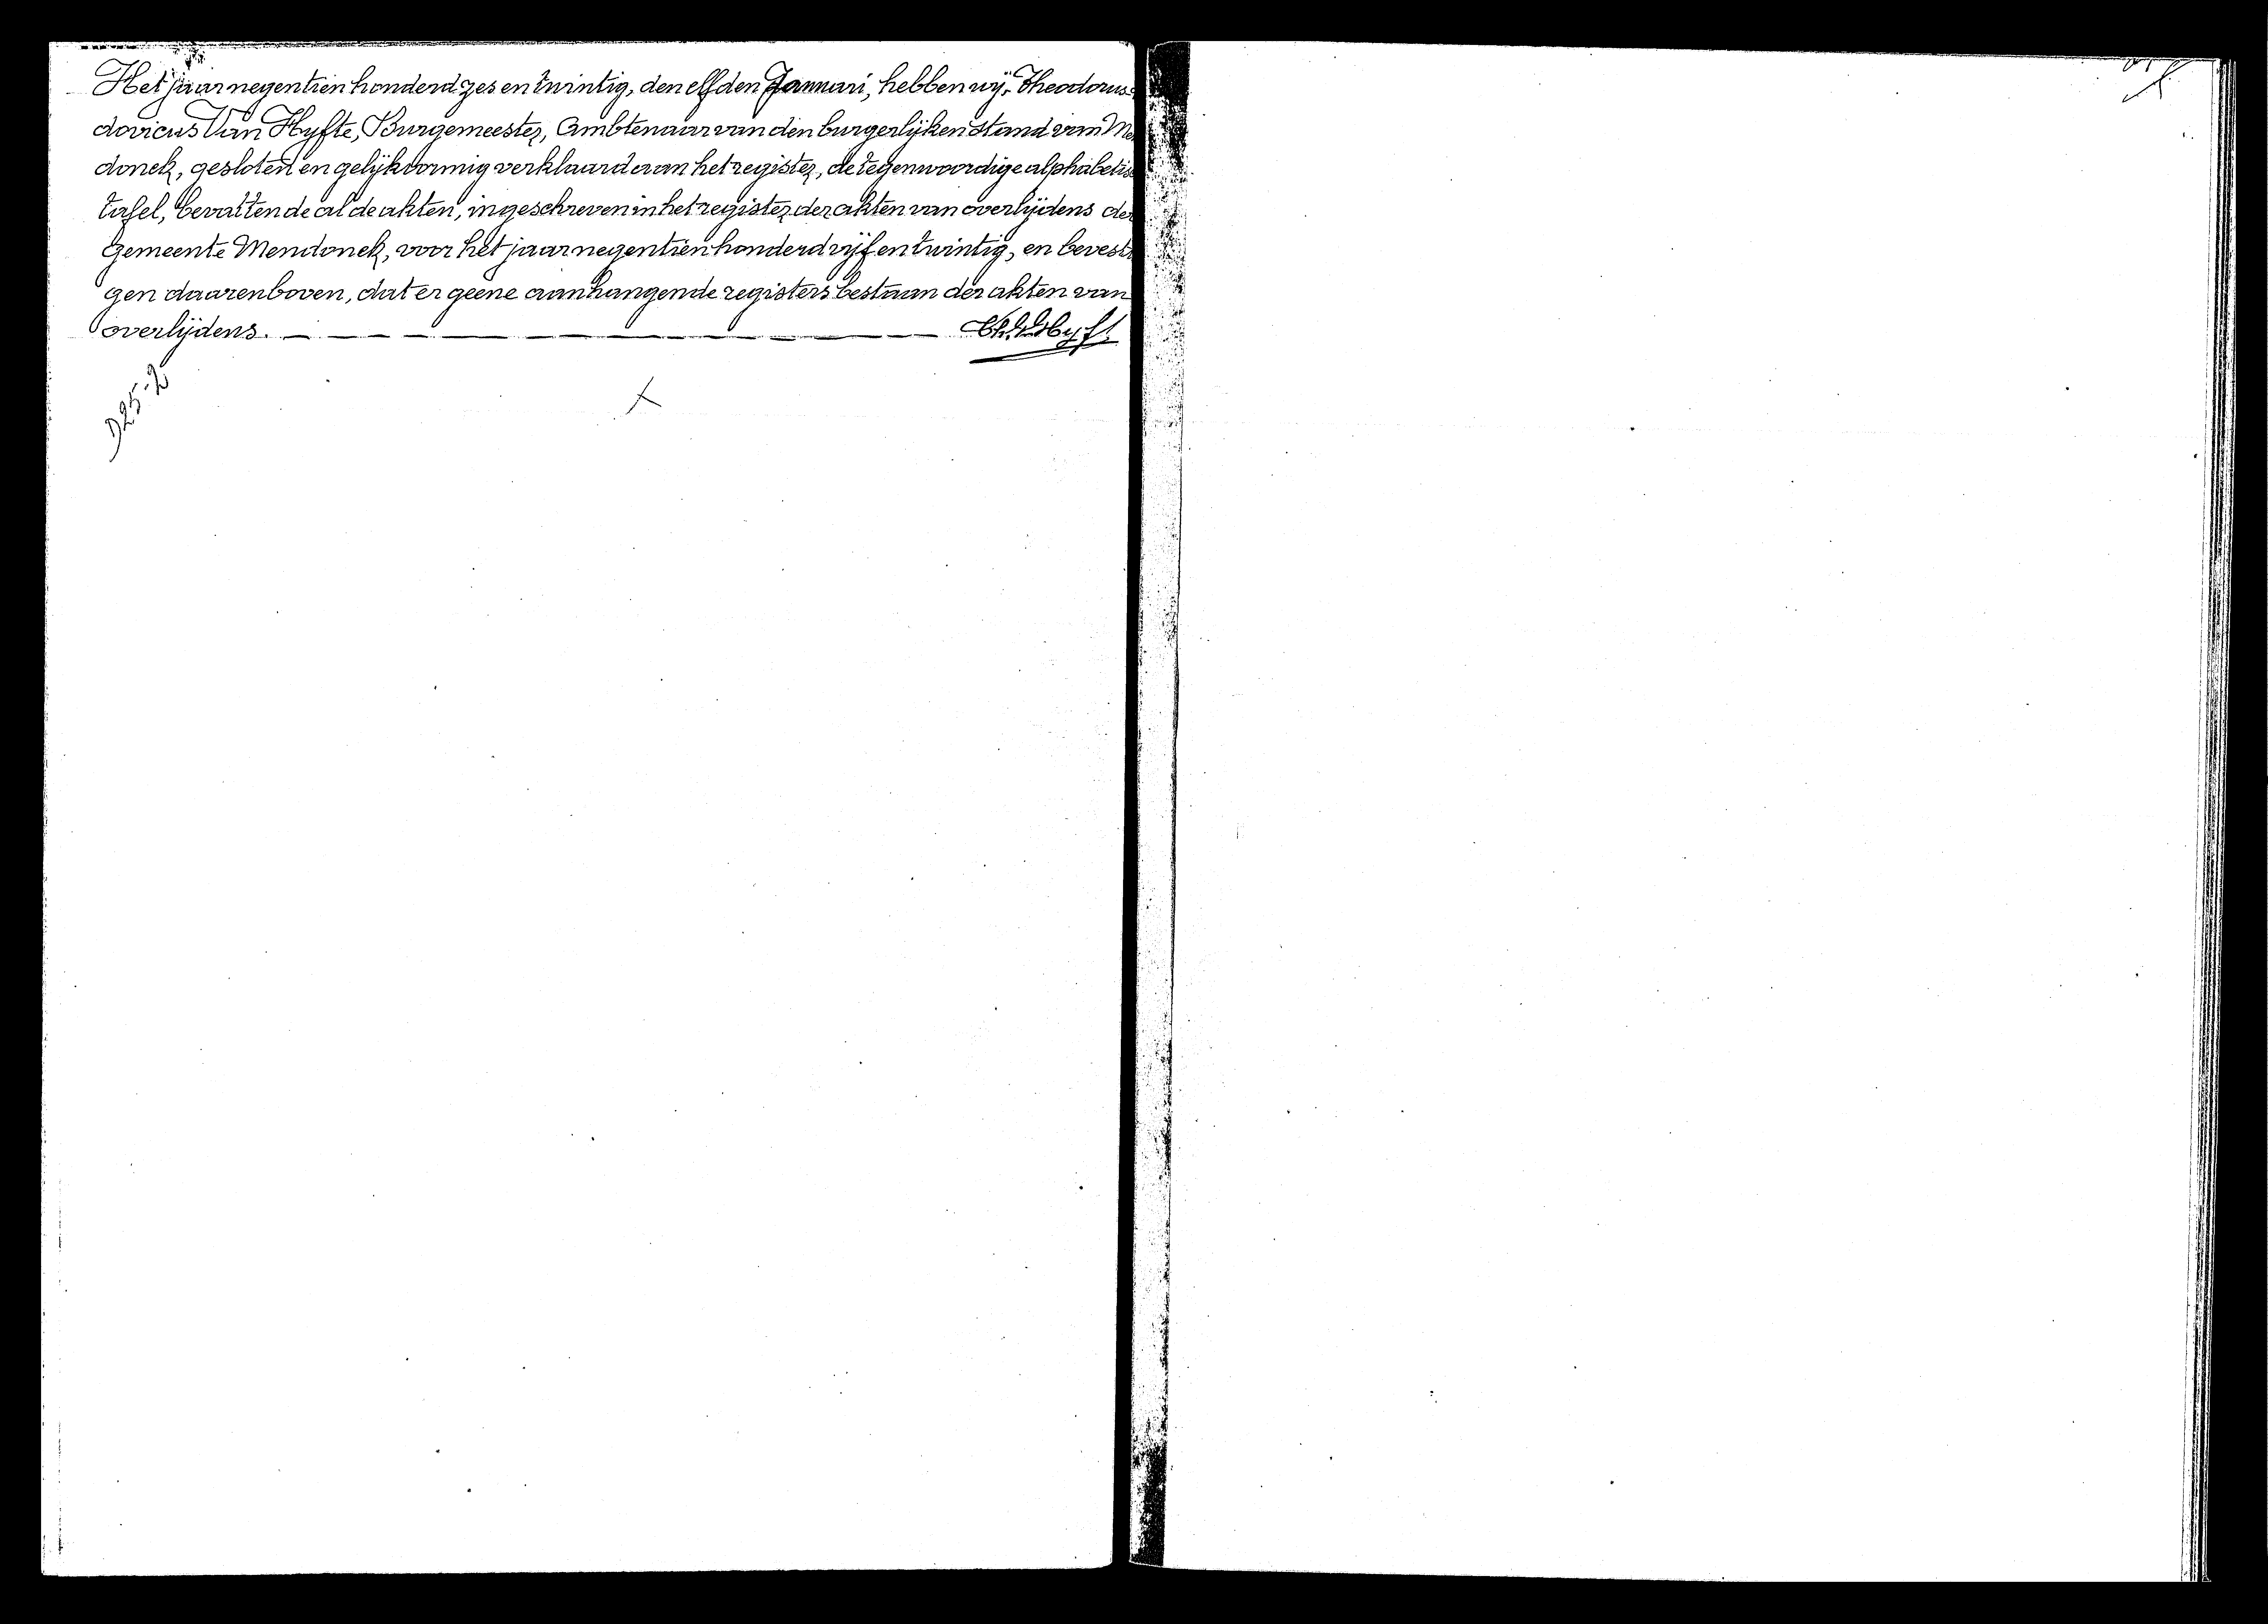 Het jaar negentien honderd zes en twintig, den elfden Januari, hebben wij, Theodorus
dovicus Van Hyfte, Burgemeester, Ambtenaar van den burgerlijken stand van Me
donck, gesloten en gelijkvormig verklaard aan het register, de tegenwoordige alphabetis
tafel, bevattende al de akten, ingeschreven in het register der akten van overlijdens der
gemeente Mendonck, voor het jaar negentien honderd vijf en twintig, en bevesti
gen daarenboven, dat er geene aanhangende registers bestaan der akten van
overlijdens.